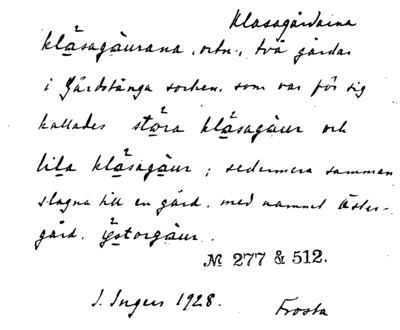 Klasagårdarna
klåsagàurana, ortn., två gårdar
i Gårdstånga socken, som var för sig
kallades stǻra klåsagàur och
lila klåsagàur; sedermera samman
slagna till en gård, med namnet Öster-
gård, ÿstorgàur.
№ 277 & 512.
I. Ingers 1928.
Frosta